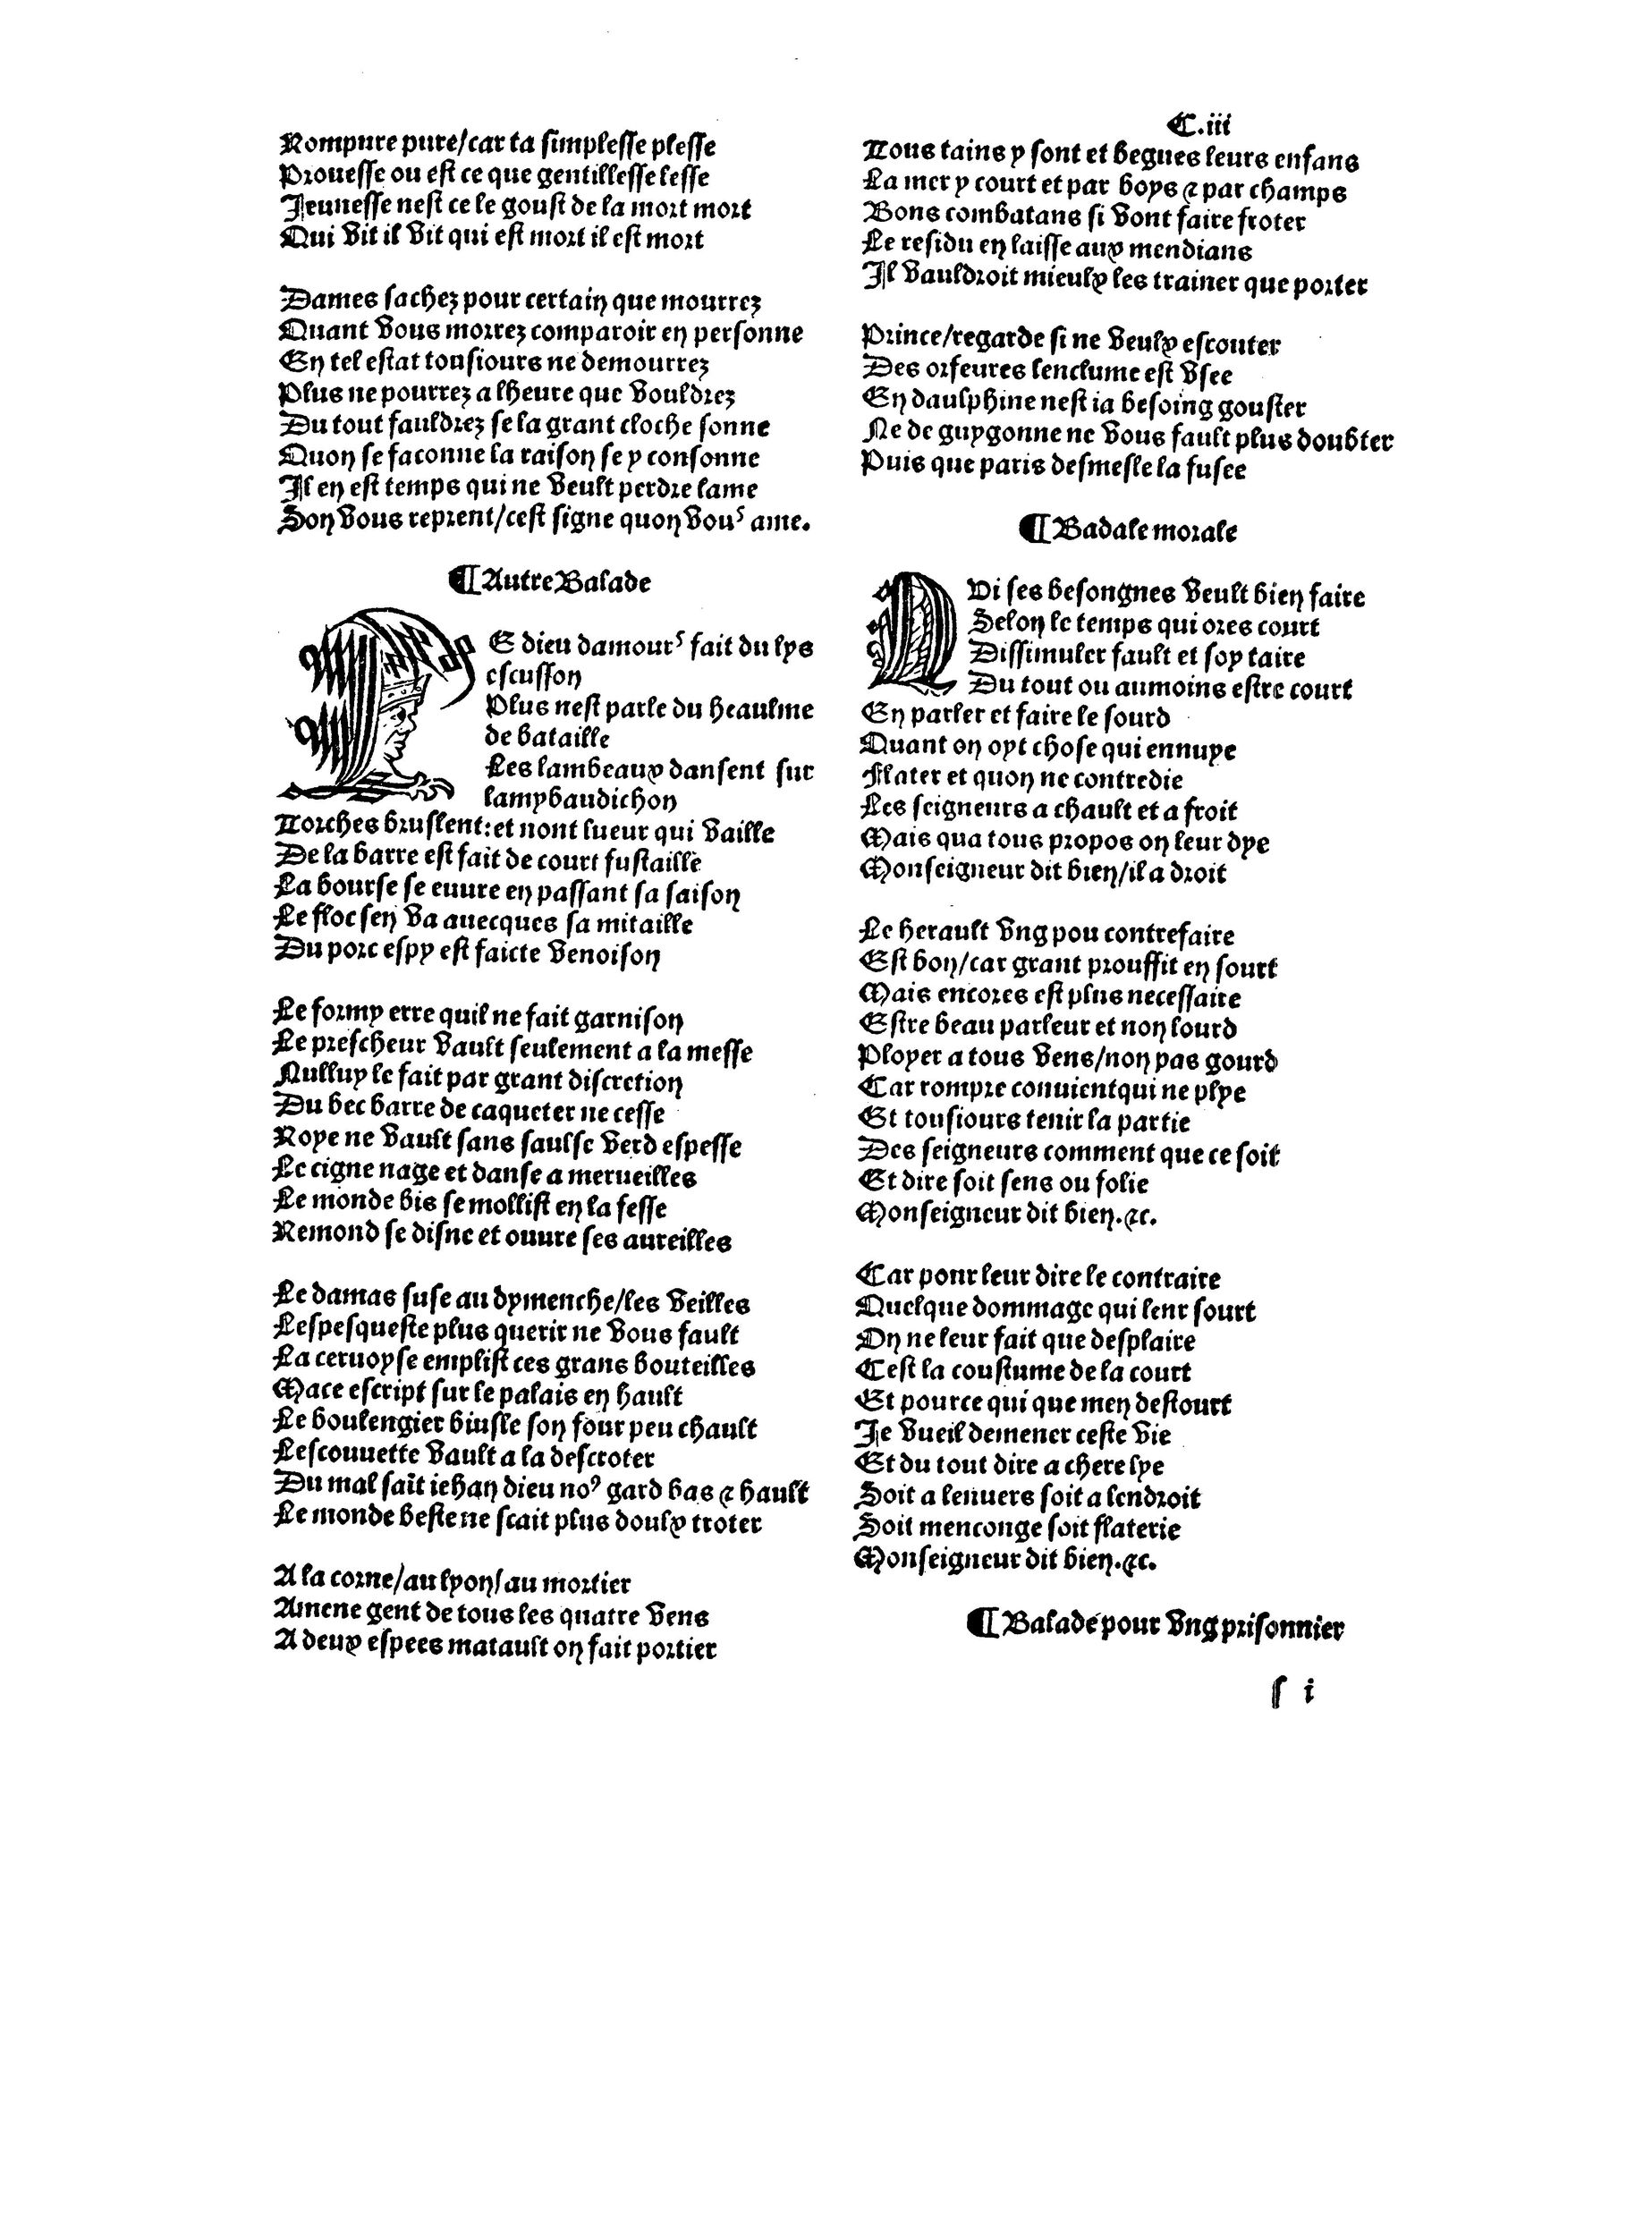 C.iii
Rompure pure/car ta simplesse plesse
Prouesse ou est ce que gentillesse lesse
Jeunesse nest ce le goust de la mort mort
Qui vit il vit qui est mort il est mort
Dames sachez pour certain que mourrez
Quant vous morrez comparoir en personne
En tel estat tousiours ne demourrez
Plus ne pourrez a lheure que vouldrez
Du tout fauldrez se la grant cloche sonne
Quon se faconne la raison se y consonne
Il en est temps qui ne veult perdre lame
Son vous reprent/cest signe quon vous ame.
¶ Autre Balade
LE dieu damours fait du lys
escusson
Plus nest parle du heaulme
de bataille
Les lambeaux dansent sur
lamybaudichon
Torches bruslent: et nont lueur qui vaille
De la barre est fait de court fustaille
La bourse se euure en passant sa saison
Le floc sen va auecques sa mitaille
Du porc espy est faicte venoison
Le formy erre quil ne fait garnison
Le prescheur vault seulement a la messe
Nulluy le fait par grant discretion
Du bec barre de caqueter ne cesse
Roye ne vault sans saulse verd espesse
Le cigne nage et danse a merueilles
Le monde bis se mollist en la fesse
Remond se disne et ouure ses aureilles
Le damas suse au dymenche/les veilles
Lespesqueste plus querir ne vous fault
La ceruoyse emplist ces grans bouteilles
Mace escript sur le palais en hault
Le boulengier biusle son four peu chault
Lescouuette vault a la descroter
Du mal sait iehan dieu noꝰ gard bas ⁊ hault
Le monde beste ne scait plus doulx troter
A la corne/au lyon/au mortier
Amene gent de tous les quatre vens
A deux espees matault on fait portier
Tous tains y sont et begues leurs enfans
La mer y court et par boys ⁊ par champs
Bons combatans si vont faire froter
Le residu en laisse aux mendians
Il vauldroit mieulx les trainer que porter
Prince/regarde si ne veulx escouter
Des orfeures lenclume est vsee
En daulphine nest ia besoing gouster
Ne de guygonne ne vous fault plus doubter
Puis que paris desmesle la fusee
¶ Badale morale
QVi ses besongnes veult bien faire
Selon le temps qui ores court
Dissimuler fault et soy taire
Du tout ou aumoins estre court
En parler et faire le sourd
Quant on oyt chose qui ennuye
Flater et quon ne contredie
Les seigneurs a chault et a froit
Mais qua tous propos on leur dye
Monseigneur dit bien/il a droit
Le herault vng pou contrefaire
Est bon/car grant prouffit en sourt
Mais encores est plus necessaire
Estre beau parleur et non lourd
Ployer a tous vens/non pas gourd
Car rompre conuientqui ne plye
Et tousiours tenir la partie
Des seigneurs comment que ce soit
Et dire soit sens ou folie
Monseigneur dit bien.⁊c.
Car ponr leur dire le contraire
Quelque dommage qui lenr sourt
On ne leur fait que desplaire
Cest la coustume de la court
Et pource qui que men destourt
Je vueil demener ceste vie
Et du tout dire a chere lye
Soit a lenuers soit a lendroit
Soit menconge soit flaterie
Monseigneur dit bien.⁊c.
¶ Balade pour vng prisonnier
s i